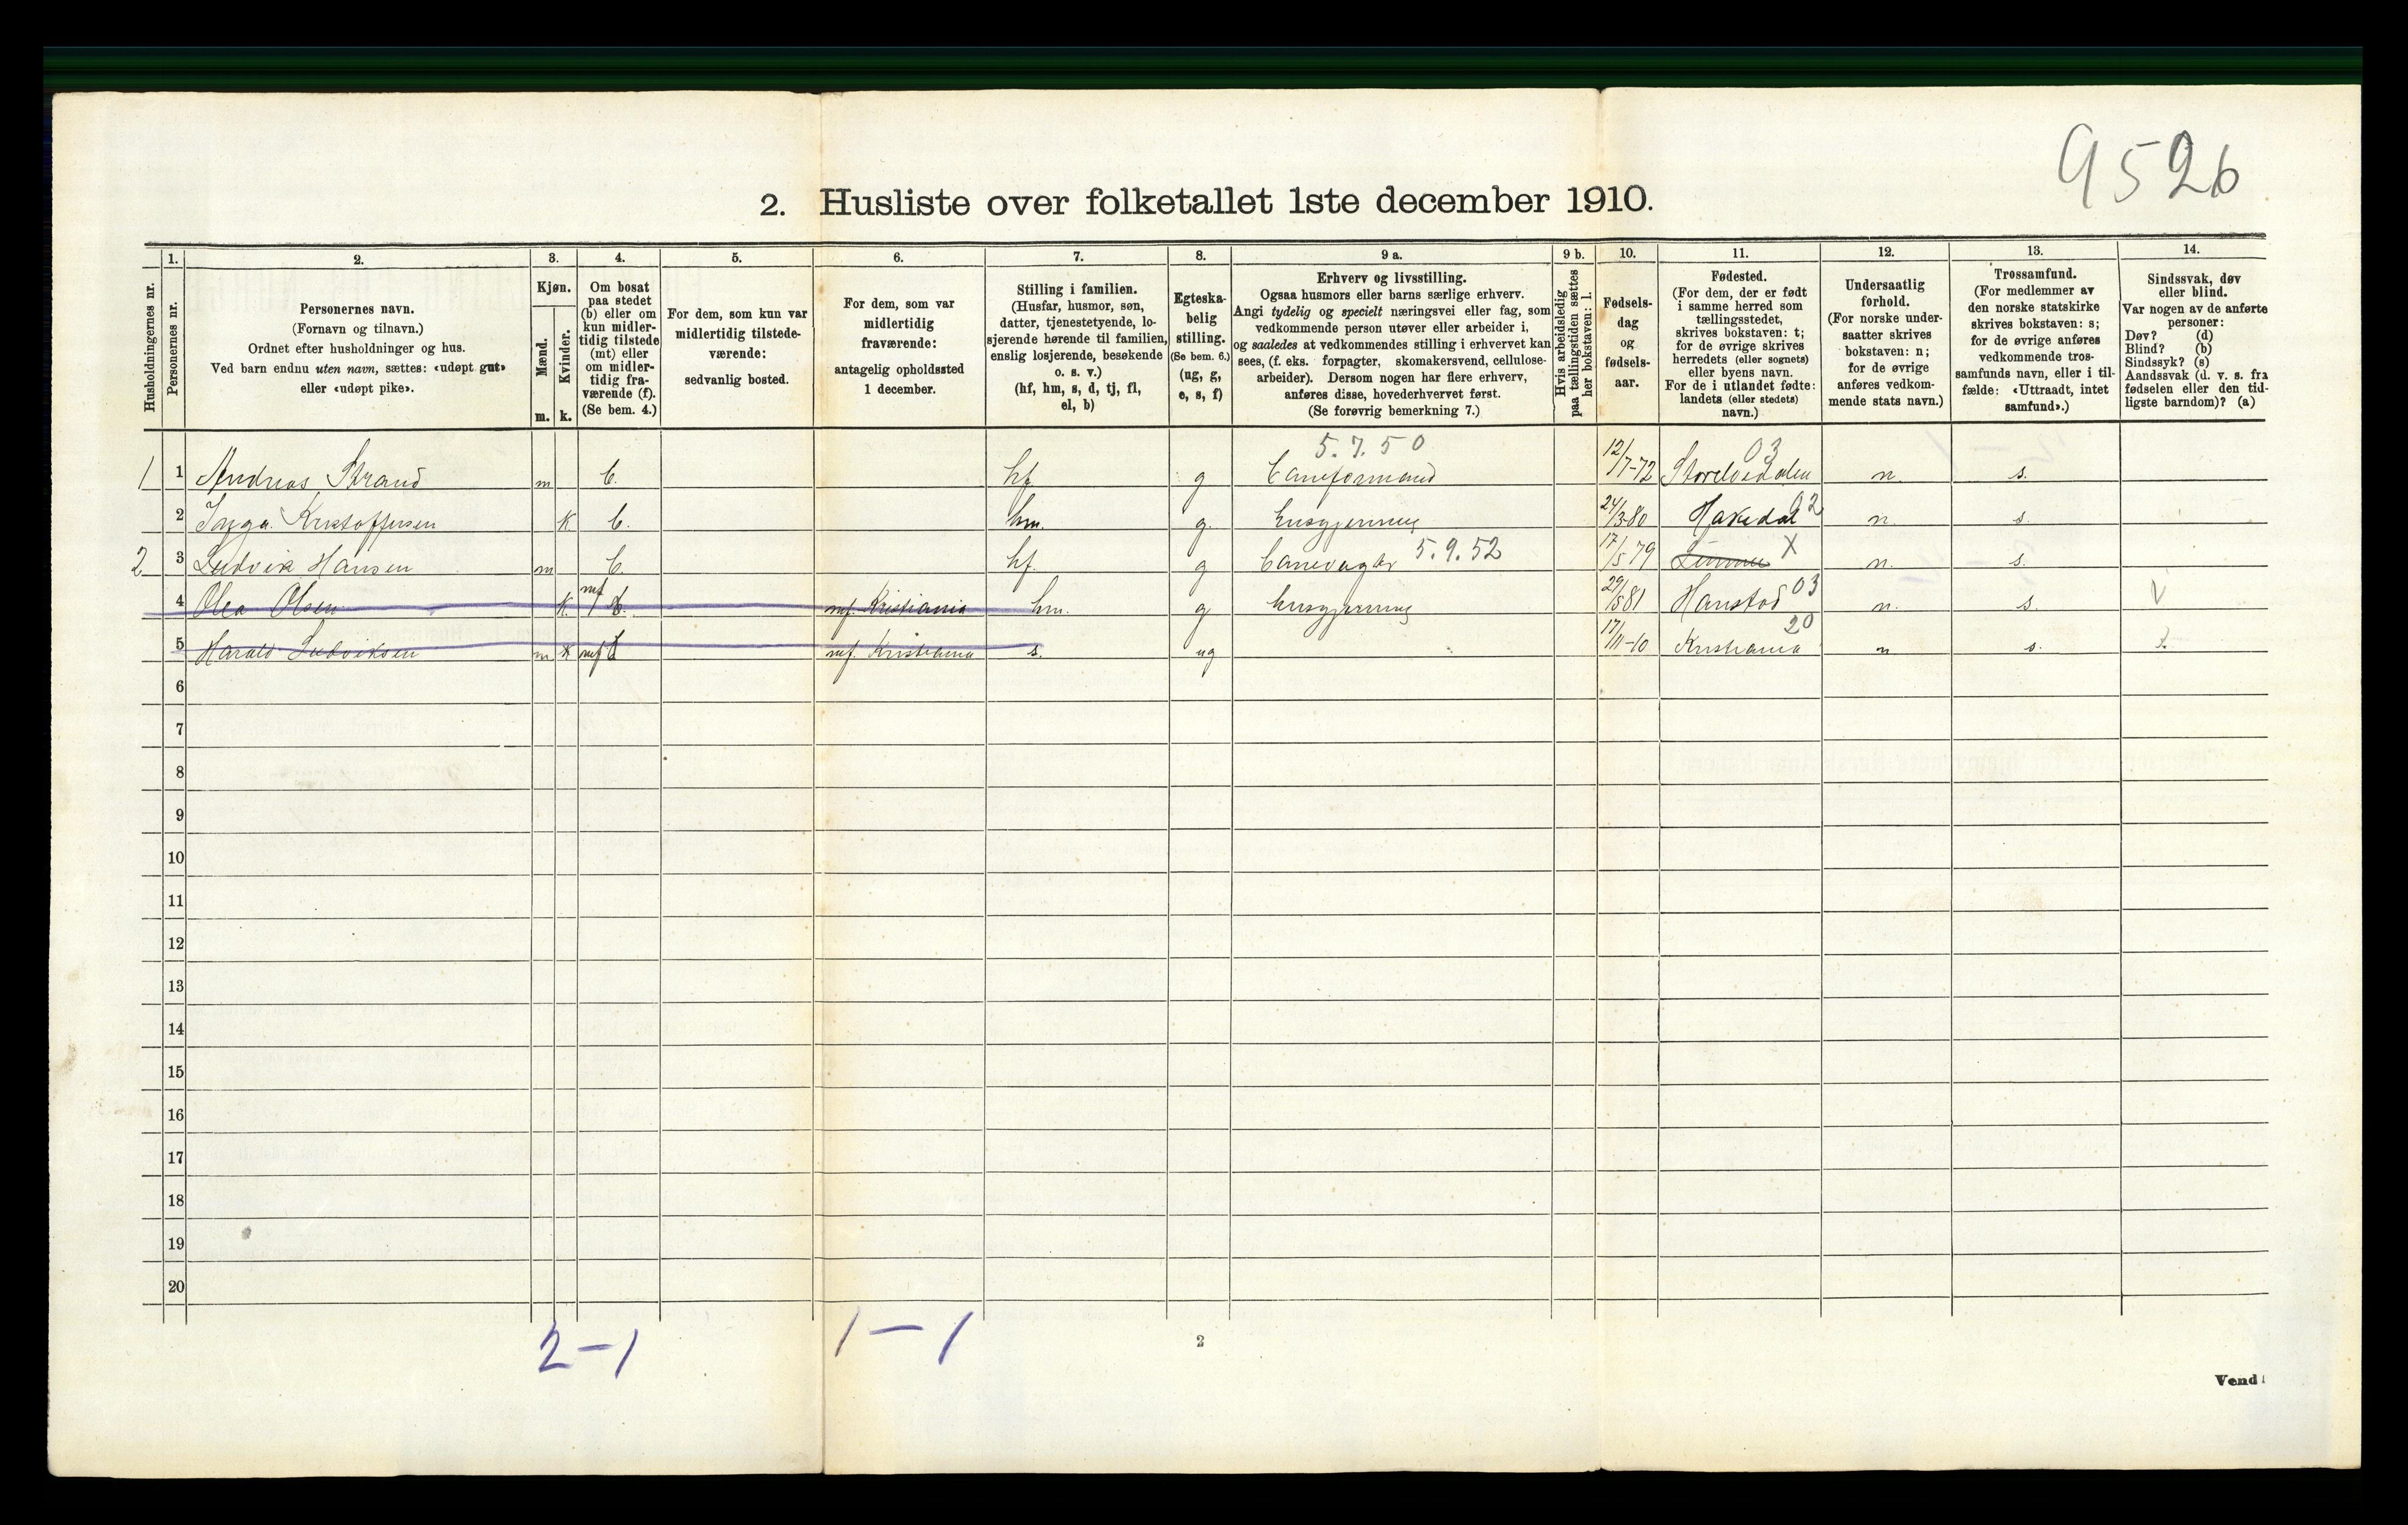 9526
2. Husliste over folketallet 1ste december 1910.
Husholdningernes nr.
1.
Personernes nr.
2.
Personernes navn.
(Fornavn og tilnavn.)
Ordnet efter husholdninger og hus.
Ved barn endnu uten navn, sættes: «udøpt gut»
eller «udøpt pike».
3.
Kjøn.
Mænd.
Kvinder.
m. k.
4.
Om bosat
paa stedet
(b) eller om
kun midler-
tidig tilstede
(mt) eller
om midler-
tidig fra-
værende (f).
(Se bem. 4.)
5.
For dem, som kun var
midlertidig tilstede-
værende:
sedvanlig bosted.
6.
For dem, som var
midlertidig
fraværende:
antagelig opholdssted
1 december.
7.
Stilling i familien.
(Husfar, husmor, søn,
datter, tjenestetyende, lo-
sjerende hørende til familien,
enslig losjerende, besøkende
o. s. v.)
(hf, hm, s, d, tj, fl,
el, b)
8.
Egteska-
belig
stilling.
(Se bem. 6.)
(ug, g,
e, s, f)
9 a.
Erhverv og livsstilling.
Ogsaa husmors eller barns særlige erhverv.
Angi tydelig og specielt næringsvei eller fag, som
vedkommende person utøver eller arbeider i,
og saaledes at vedkommendes stilling i erhvervet kan
sees, (f. eks. forpagter, skomakersvend, cellulose-
arbeider). Dersom nogen har flere erhverv,
anføres disse, hovederhvervet først.
(Se forøvrig bemerkning 7.)
9 b.
Hvis arbeidsledig
paa tællingstiden sættes
her bokstaven: l.
10.
Fødsels-
dag
og
fødsels-
aar.
11.
Fødested.
(For dem, der er født
i samme herred som
tællingsstedet,
skrives bokstaven: t;
for de øvrige skrives
herredets (eller sognets)
eller byens navn.
For de i utlandet fødte:
landets (eller stedets)
navn.)
12.
Undersaatlig
forhold.
(For norske under-
saatter skrives
bokstaven: n;
for de øvrige
anføres vedkom-
mende stats navn.)
13.
Trossamfund.
(For medlemmer av
den norske statskirke
skrives bokstaven: s;
for de øvrige anføres
vedkommende tros-
samfunds navn, eller i til-
fælde: «Uttraadt, intet
samfund».)
14.
Sindssvak, døv
eller blind.
Var nogen av de anførte
personer:
Døv? (d)
Blind? (b)
Sindssyk? (s)
Aandssvak (d. v. s. fra
fødselen eller den tid-
ligste barndom)? (a)
5.7.50 03
1 1 Andreas Strand m b. hf g Baneformand 12/7-72 Storelvedalen n s.
2 Inga Kristoffersen k b. hm. g. husgjerning 24/3-80 Hakedal 02 n. s.
2 3 Ludvik Hansen m b. hf. g Banevagtr 5.9.52 17/5 79 X n. s.
4 Olea Olsen k. mf b. mf. Kristiania hm. g husgjerning 29/5 81 Hanstad 03 n. s.
5 Harald Ludviksen m k mf b mf. Kristiania s. ug 17/11-10 Kristiania 20 n s.
6
7
8
9
10
11
12
13
14
15
16
17
18
19
20
2-1 1-1
2
Vend!